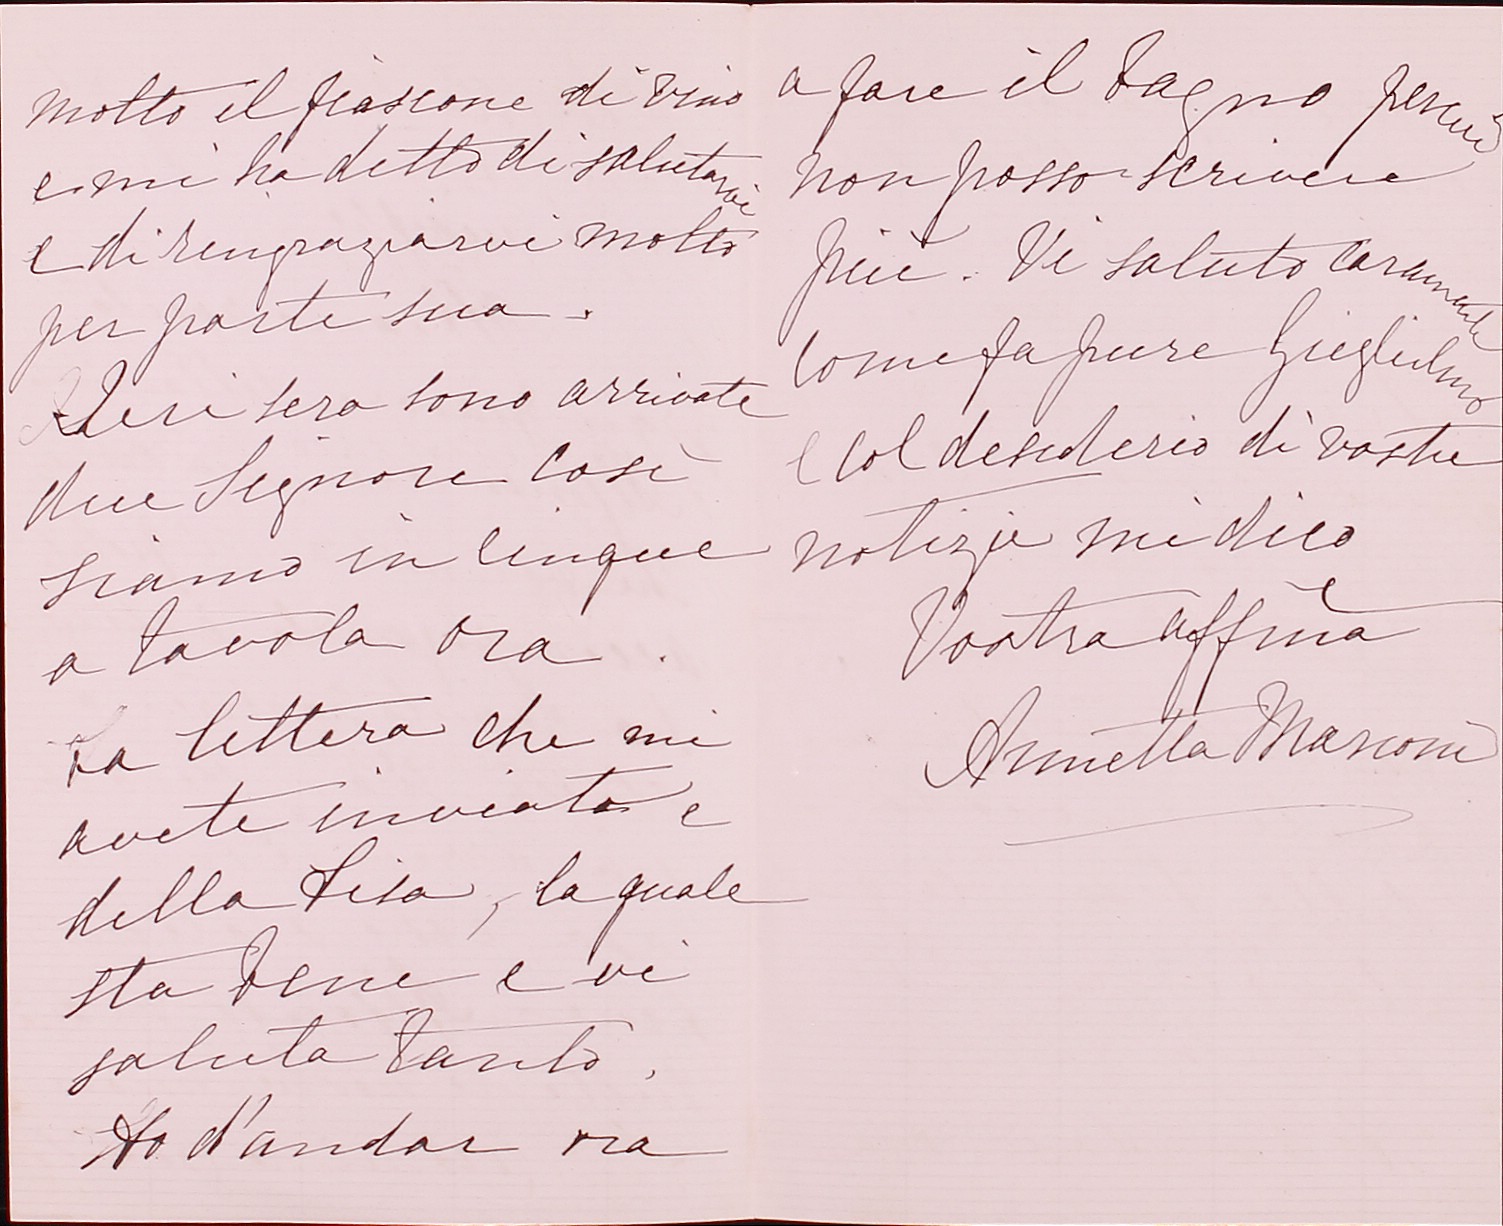 molto il fiascone di vino
e mi ha detto di salutarvi
e di rengraziarvi molto
per parte sua.
Ieri sera sono arrivate
due Signore così
siamo in cinque
a tavola ora.
La lettera che mi
avete inviato e
della Lisa, la quale
sta bene e vi
saluta tanto.
Ho d'andar ora
a fare il bagno perciò
non posso scrivere
più. Vi saluto caramente
come fa pure Guglielmo
e col desiderio di vostre
notizie mi dico
Vostra affma
Annetta Marconi